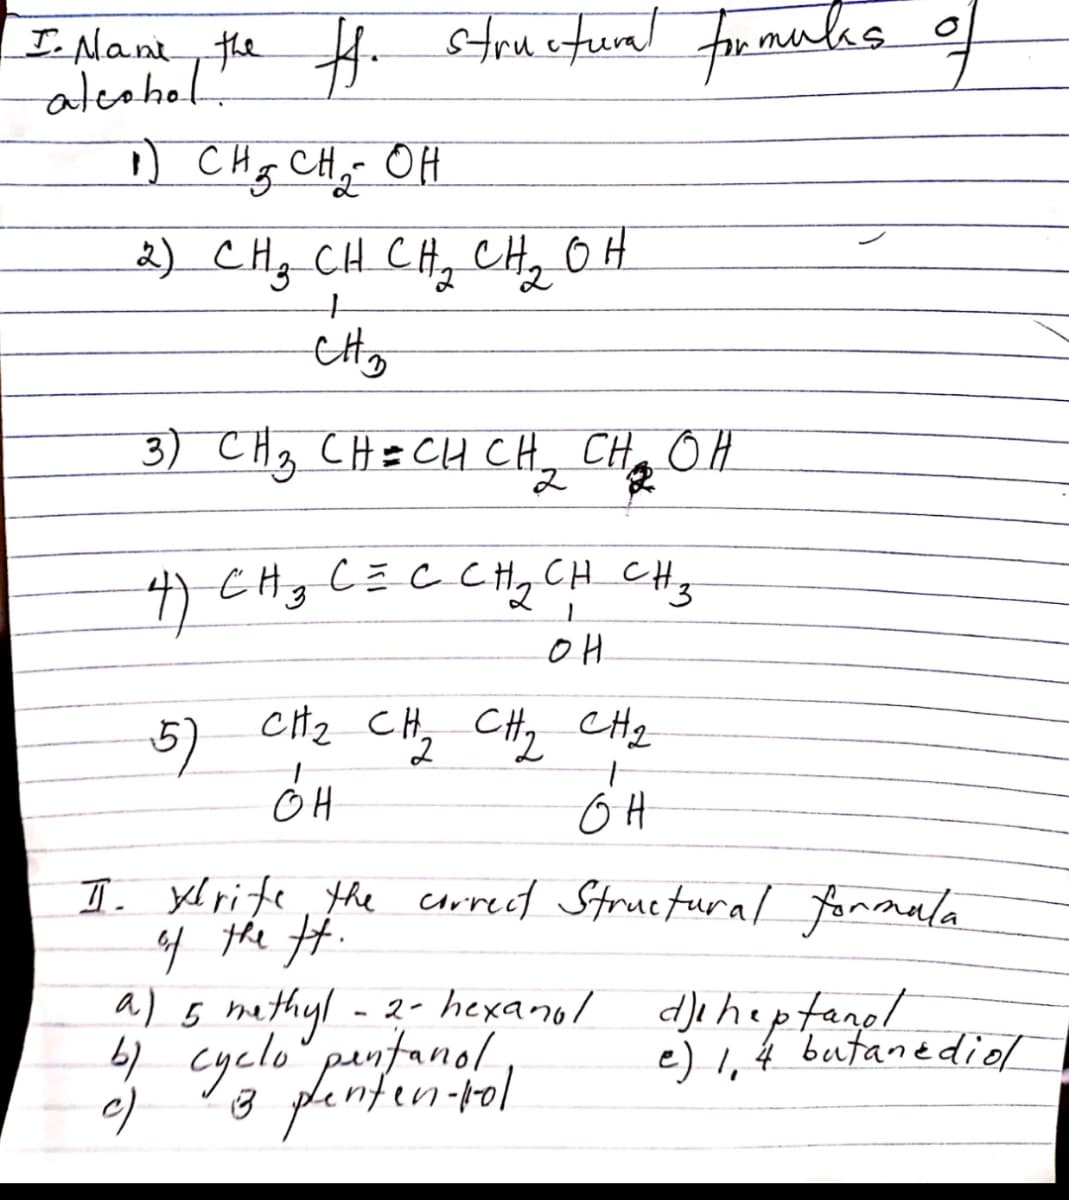 I. Name the ff. structural formulas of
alcohol.
1) CH₃ CH₂- OH
2) CH₃ CH CH₂ CH₂ OH
CH₃
3) CH₃ CH=CH CH₂ CH₂ OH
4) CH₃ C≡C CH₂ CH CH₃
OH
5) CH₂ CH₂ CH₂ CH₂
OH OH
II. Write the correct Structural formula
of the ff.
a) 5 methyl - 2- hexanol d) 1 heptanol
b) cyclo pentanol e) 1, 4 butanediol
c) 3 penten-1-ol